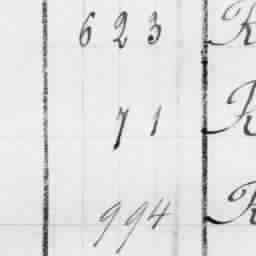 623 R
71 R
994 R